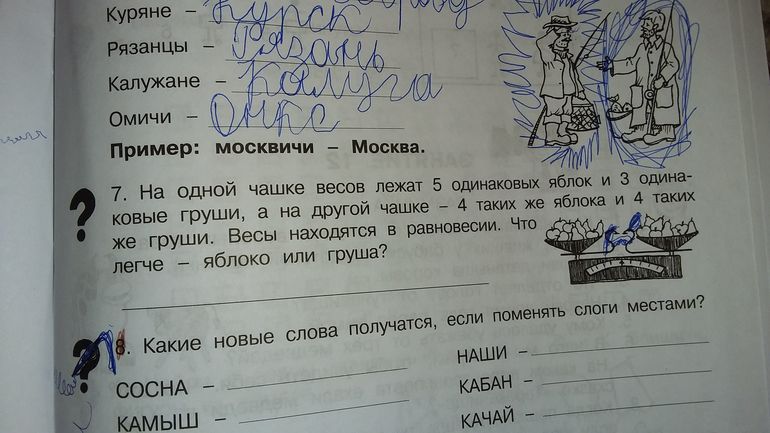 Куряне – Курск
Рязанцы – Рязань
Калужане – Калуга
Омичи – Онкс
Пример: москвичи – Москва.
? 7. На одной чашке весов лежат 5 одинаковых яблок и 3 одина-
ковые груши, а на другой чашке – 4 таких же яблока и 4 таких
же груши. Весы находятся в равновесии. Что
легче – яблоко или груша?
? 8. Какие новые слова получатся, если поменять слоги местами?
СОСНА –
НАШИ –
КАМЫШ –
КАБАН –
КАЧАЙ –